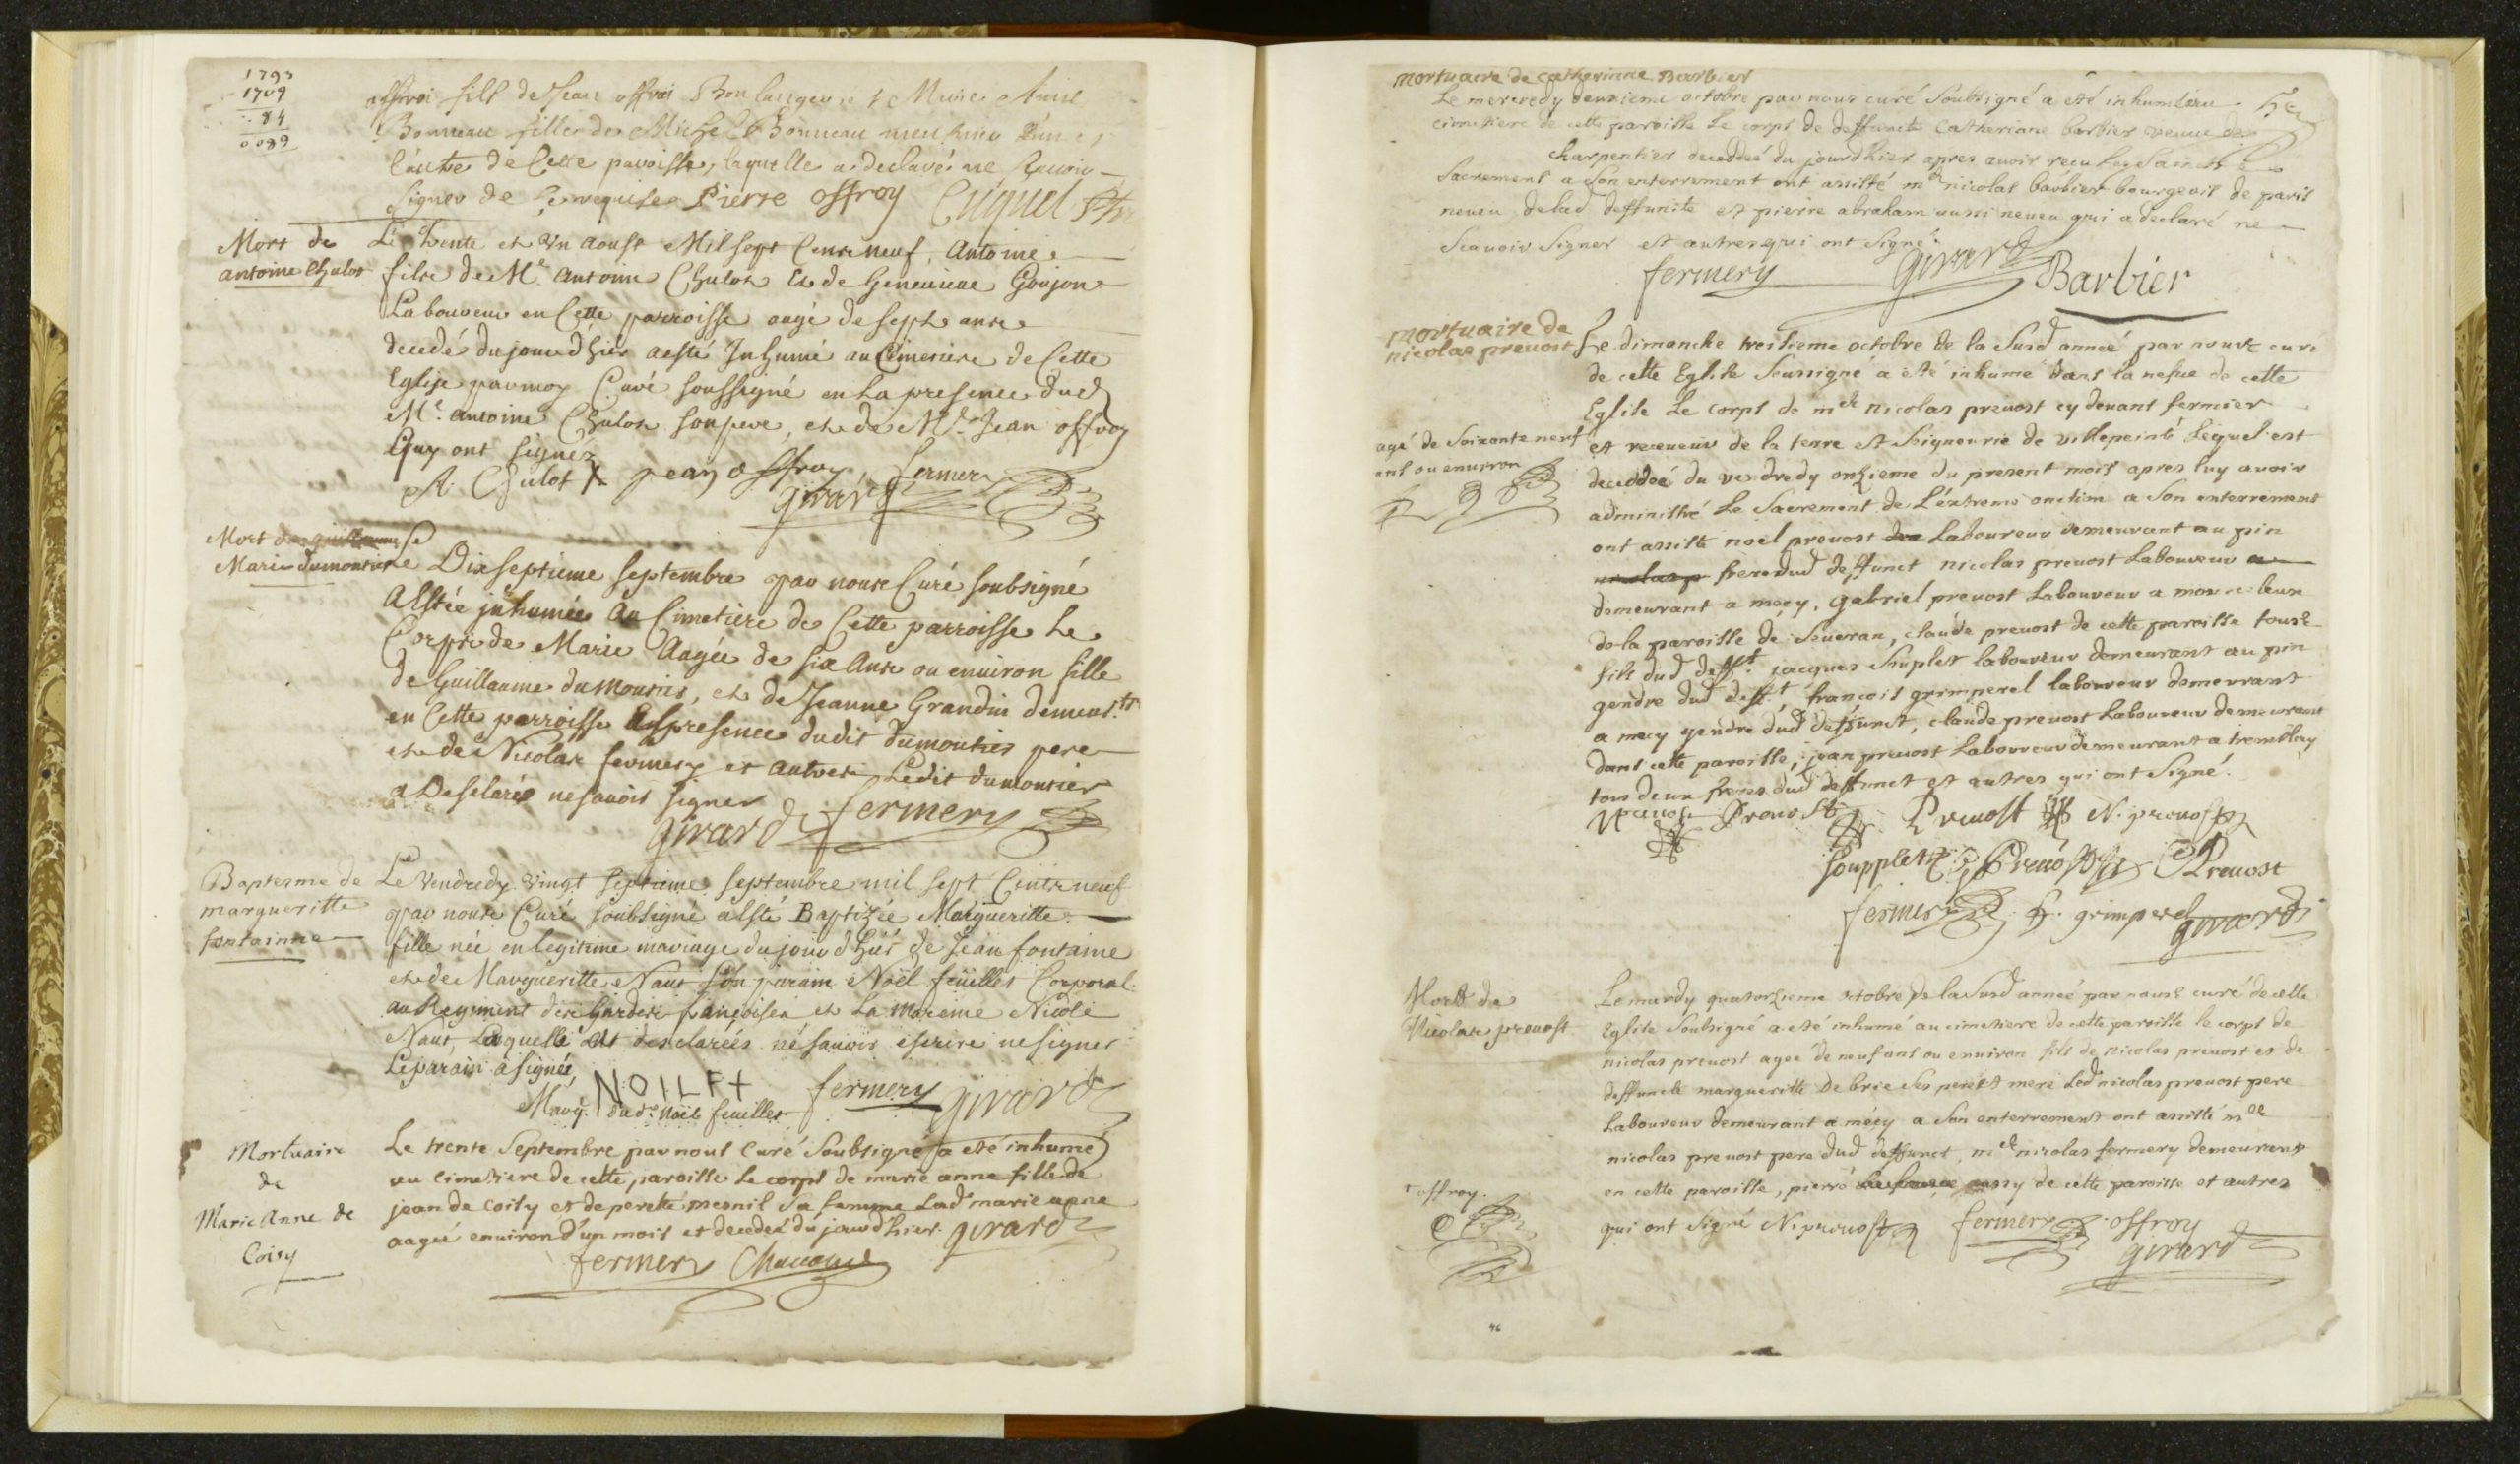 1793
1709
84
0089
offroi fils de Jean offroi Boulanger et Marie Anne
Bonneau fille de Michel Bonneau meusnier l'un et
l'autre de Cette paroisse, laquelle a declaré ne scavoir
signer de ce requise Pierre offroy Cuquel
Mort de
antoine Chulot
Le trente et un aoust Mil sept Cents neuf, Antoine
fils de Me. Antoine Chulot et de Geneuieue Goujon
Laboureur en Cette parroisse aagé de sept ans
decedé du jour d'hier a esté Inhumé au Cimetiere de Cette
Eglise par moy Curé soussigné en la presence dud
Me. antoine Chulot son pere, et de Me. Jean offroy
Quy ont signéz
A. Chulot Jean offroy fermery
girard
Mort de
Marie dumoutier
Le Dixseptiéme septembre par nous Curé soubsigné
A Estée inhumée Au Cimetiere de Cette parroisse Le
Corps de Marie Aagée de six Ans ou enuiron fille
de Guillaume dumoutier, et de Jeanne Grandin demeurts.
en Cette parroisse En presence dudit dumoutier pere
et de Nicolas fermery et autres Ledit dumoutier
a Desclaré ne sauoir signer
girard fermery
Baptesme de
margueritte
fontainne
Le Vendredy vingt septieme septembre mil sept Cents neuf
par nous Curé soubsigné a Esté Baptizée Margueritte
fille née en legitime mariage du jour d'hier de Jean fontaine
et de Margueritte Naut son parain Noël feuillet Corporal
au Regiment des Gardes françoises et La mareine Nicole
Naut, Laquelle At desclarées ne sauoir escrire ne signer
Le parain a signée,
NOILF+ fermery girard
Marq. dud. Noël feuillet
Mortuaire
de
Marie Anne de
Coisy
Le trente Septembre par nous Curé Soubsigné a eté inhumé
au cimetiere de cette paroisse Le corps de marie anne fille de
jean de Coisy et de perette mesnil Sa femme Lad marie anne
aageé enuiron d'un mois et decedeé du jourd'hier. girard
fermery
mortuaire de catherinne Barbier
Le mercredy deuxieme octobre par nous curé Soubsigné a eté inhumé au
cimetiere de cette paroisse Le corps de deffuncte catherinne barbier veuue de
charpentier deceddeé du jourd'hier apres auoir recu les Saincts
Sacrement a Son enterrement ont assisté mr nicolas barbier bourgeois de paris
neueu de lad deffuncte et pierre abraham aussi neueu qui a declaré ne
Scauoir Signer et autres qui ont Signé.
fermery girard Barbier
mortuaire de
nicolas preuost
agé de Soixante neuf
ans ou enuiron
Le dimanche treisieme octobre de la Susd anneé par nous curé
de cette Eglise Soussigné a eté inhumé dans la nefue de cette
Eglise Le corps de mre nicolas preuost cy deuant fermier
et receueur de la terre et Seigneurie de villepeinte Lequel est
deceddeé du vendredy onzieme du present mois apres luy auoir
administré Le Sacrement de L'extreme onction a Son enterrement
ont assisté noël preuost Laboureur demeurant au pin
frere dud deffunct nicolas preuost Laboureur
demeurant a mory, gabriel preuost Laboureur a
de la paroisse de Seueran, claude preuost de cette paroisse tous
fils dud defft. jacques Souplet laboureur demeurant au pin
gendre dud defft. francois grimperel laboureur demeurant
a mery gendre dud deffunct, claude preuost Laboureur demeurant
dans cette paroisse, jean preuost Laboureur demeurant a tremblay
tous deux freres dud deffunct et autres qui ont Signé.
Preuost Preuost N. preuost
Soupplet Preuost Preuost
fermery F. grimperel girard
Mort de
Nicolas preuost
Le mardy quatorzieme octobre de la Susd anneé par nous curé de cette
Eglise Soubsigné a eté inhumé au cimetiere de cette paroisse le corps de
nicolas preuost ageé de neuf ans ou enuiron fils de nicolas preuost et de
deffuncte margueritte De brie Ses pere et mere Led nicolas preuost pere
Laboureur demeurant a mery a Son enterrement ont assisté mre
nicolas preuost pere dud deffunct, mre nicolas fermery demeurant
en cette paroisse, pierre aussy de cette paroisse et autres
qui ont Signé N. preuost fermery offroy
girard
offroy.
46